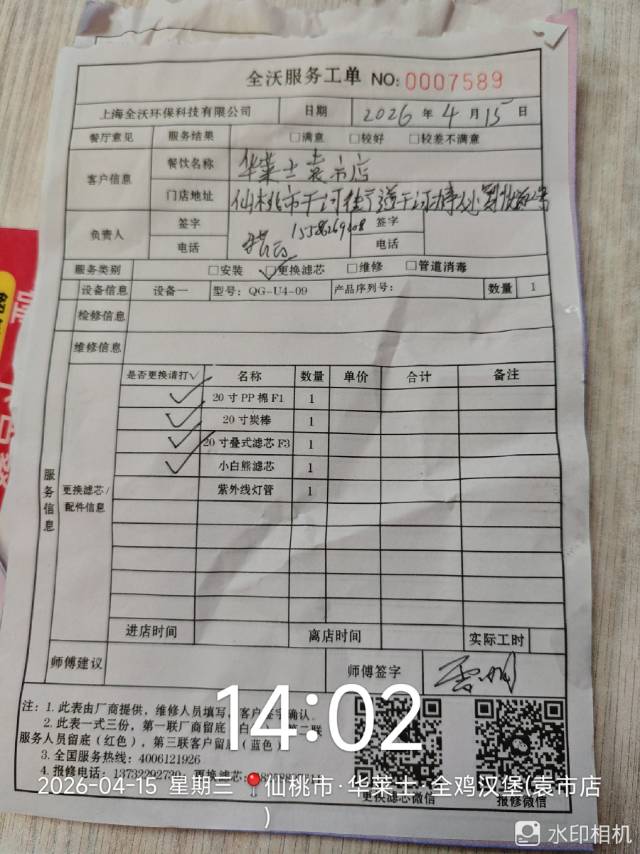 全沃服务工单 NO:0007589
上海全沃环保科技有限公司 日期 2026 年 4 月 15 日
餐厅意见 服务结果 □满意 □较好 □较差不满意
客户信息 餐饮名称 华莱士袁市店
门店地址 仙桃市干河
负责人 签字 签字
电话 电话
服务类别 □安装 ✓□更换滤芯 □维修 □管道消毒
设备信息 设备一 型号: QG-U4-09 产品序列号: 数量 1
检修信息
维修信息
服务信息
更换滤芯/配件信息
是否更换请打√ 名称 数量 单价 合计 备注
✓ 20寸PP棉F1 1
✓ 20寸炭棒 1
✓ 20寸叠式滤芯F3 1
✓ 小白熊滤芯 1
紫外线灯管 1
进店时间 离店时间 实际工时
师傅建议 师傅签字
注: 1. 此表由厂商提供, 维修人员填写, 客户签字确认。
2. 此表一式三份, 第一联厂商留底(白 第二联
服务人员留底(红色), 第三联客户留 (蓝色)
3. 全国服务热线: 4006121926
4. 报修电话: 13732292730 更换滤芯:
更换滤芯微信 报修微信
14:02
2026-04-15 星期三 📍仙桃市·华莱士·全鸡汉堡(袁市店
)
水印相机